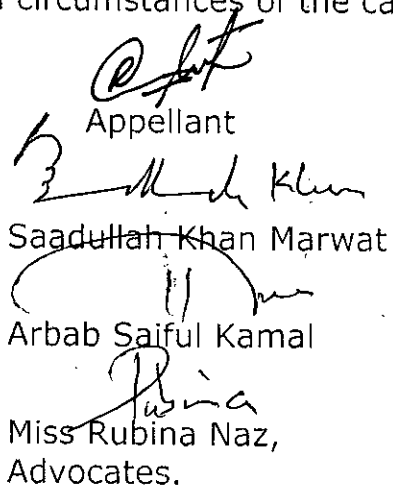 circumstances of the ca
Appellant
Khan
Saadullah Khan Marwat
Arbab Saiful Kamal
Rubina
Miss Rubina Naz,
Advocates.